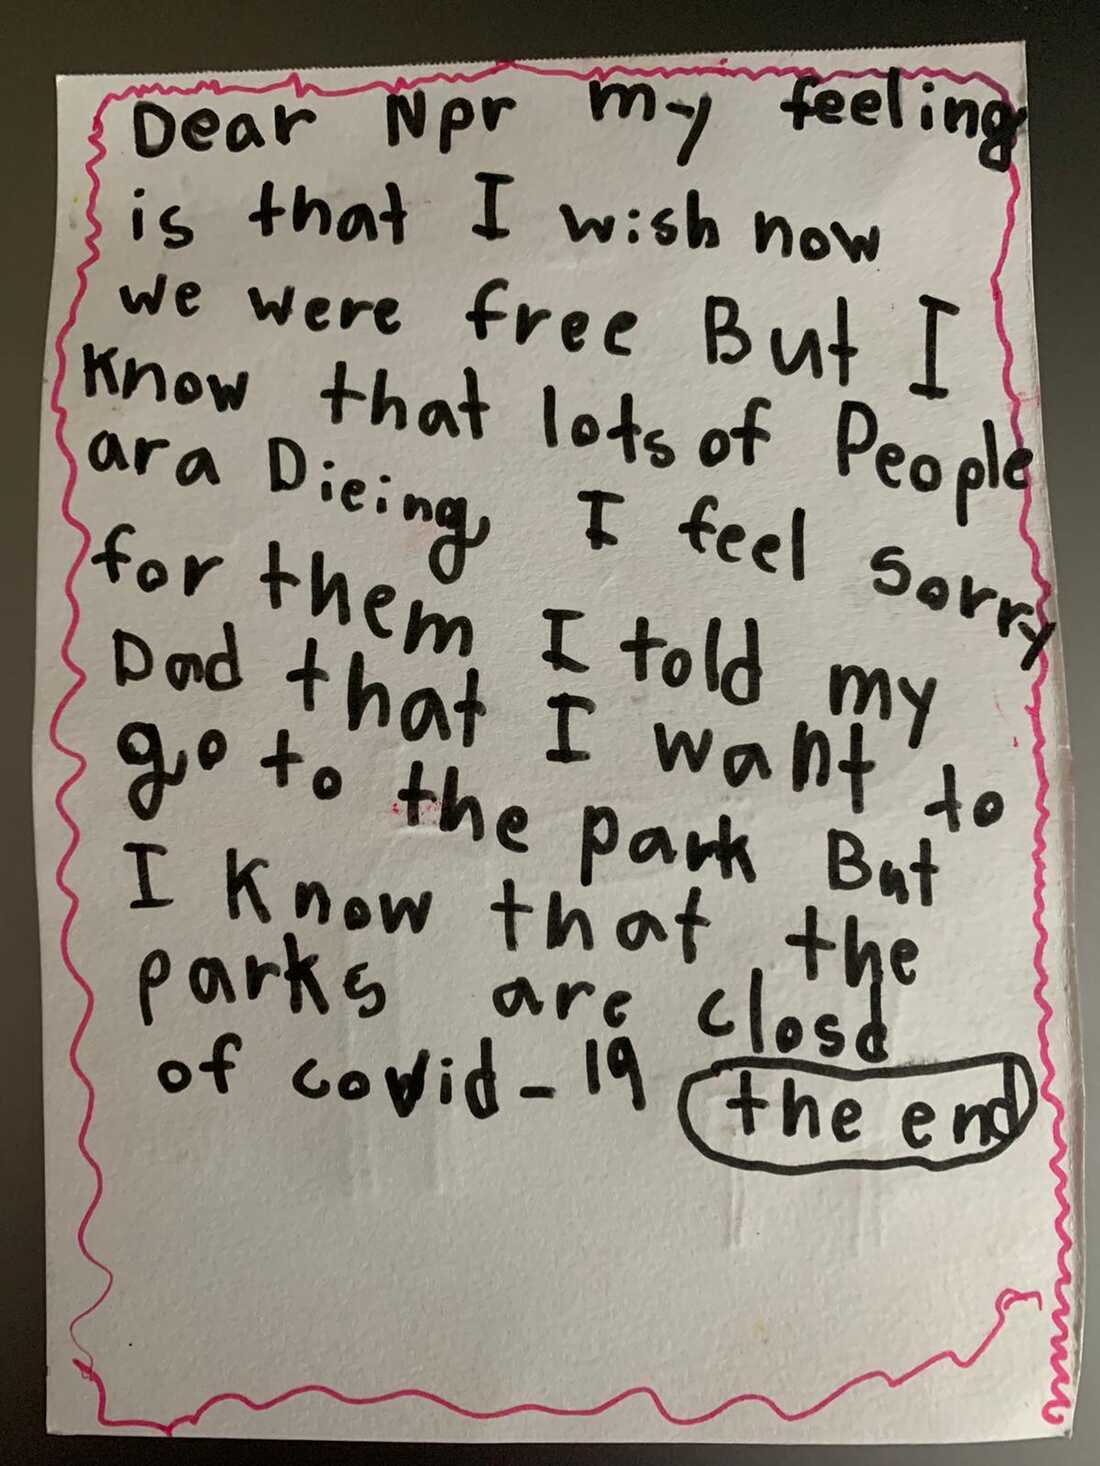 Dear Npr my feeling
is that I wish now
we were free But I
Know that lots of People
ara Dieing I feel sorry
for them I told my
Dad that I want to
go to the park But
I Know that the
parks are closd
of covid-19 the end